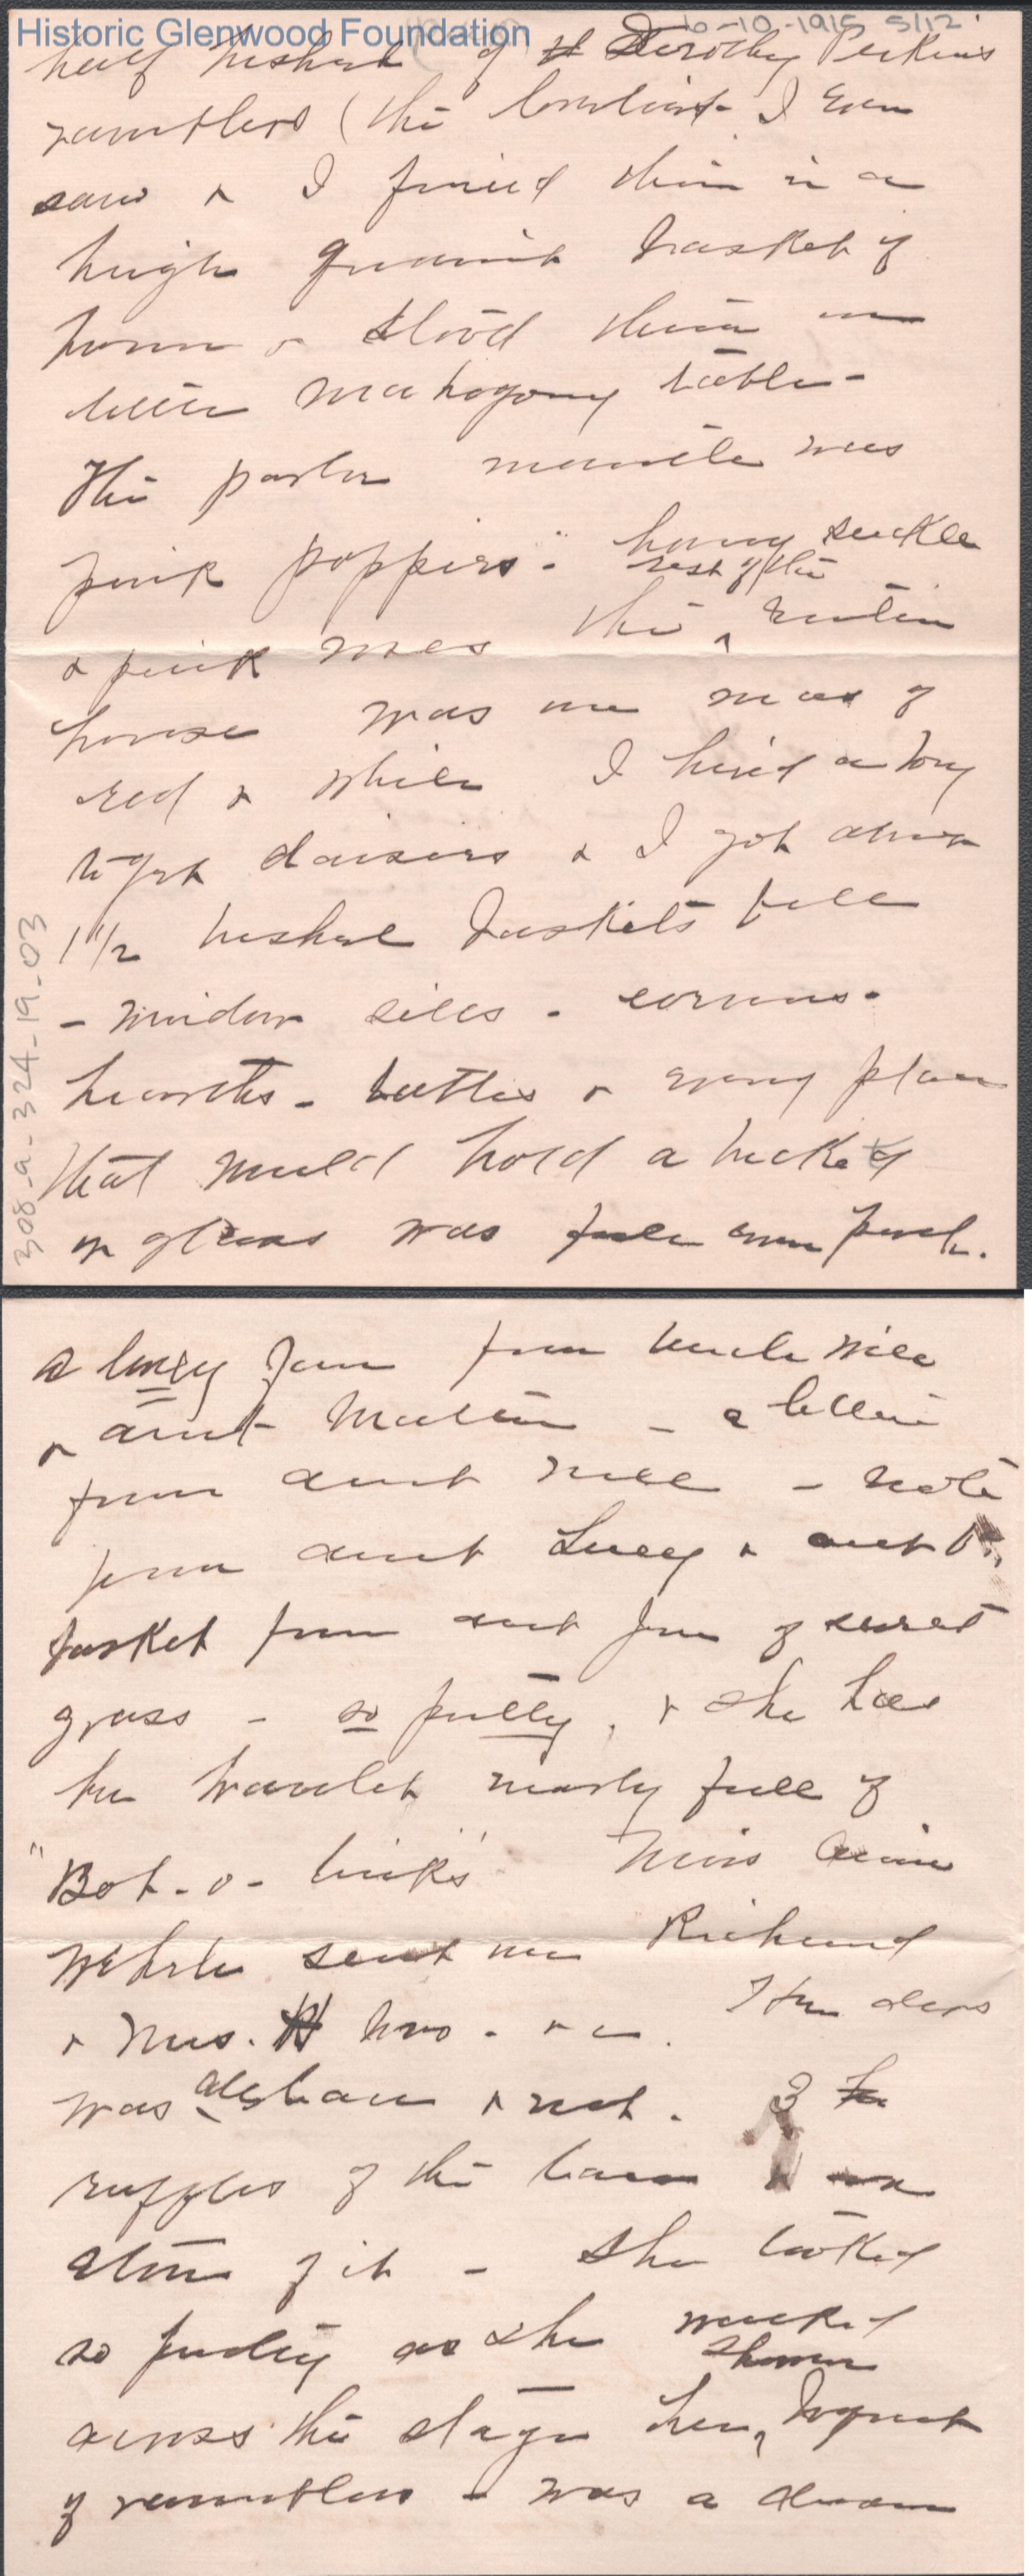 Historic Glenwood Foundation
6-10-1915 5/12
half bushel of Dorothy Perkins
ramblers (the loveliest I ever
saw & I fixed them in a
high quaint basket of
& stood them on
little mahogony table -
The parlor mantle was
pink poppies - honey suckle
& pink was the ^ rest of the entire
house was one mass of
red & white I hired a boy
to get daisies & I got about
1 1/2 bushel baskets full
- window sills - corners -
hearths - tables & every place
that would hold a bucket
or glass was full even porch.
308-a-324-19-03
a lovely from Uncle Will
& aunt Mattie - a letter
from aunt Nell - note
from aunt Lucy & aunt
basket from aunt Jane of sweet
grass - so pretty, & she has
her bracelet nearly full of
"Bob-o-links" Miss Annie
sent me Richard
& Mrs. H
was & net. 3
ruffles of the lace
of it - She looked
so pretty as she walked
across the stage her ^ shower boquet
of ramblers - was a dream